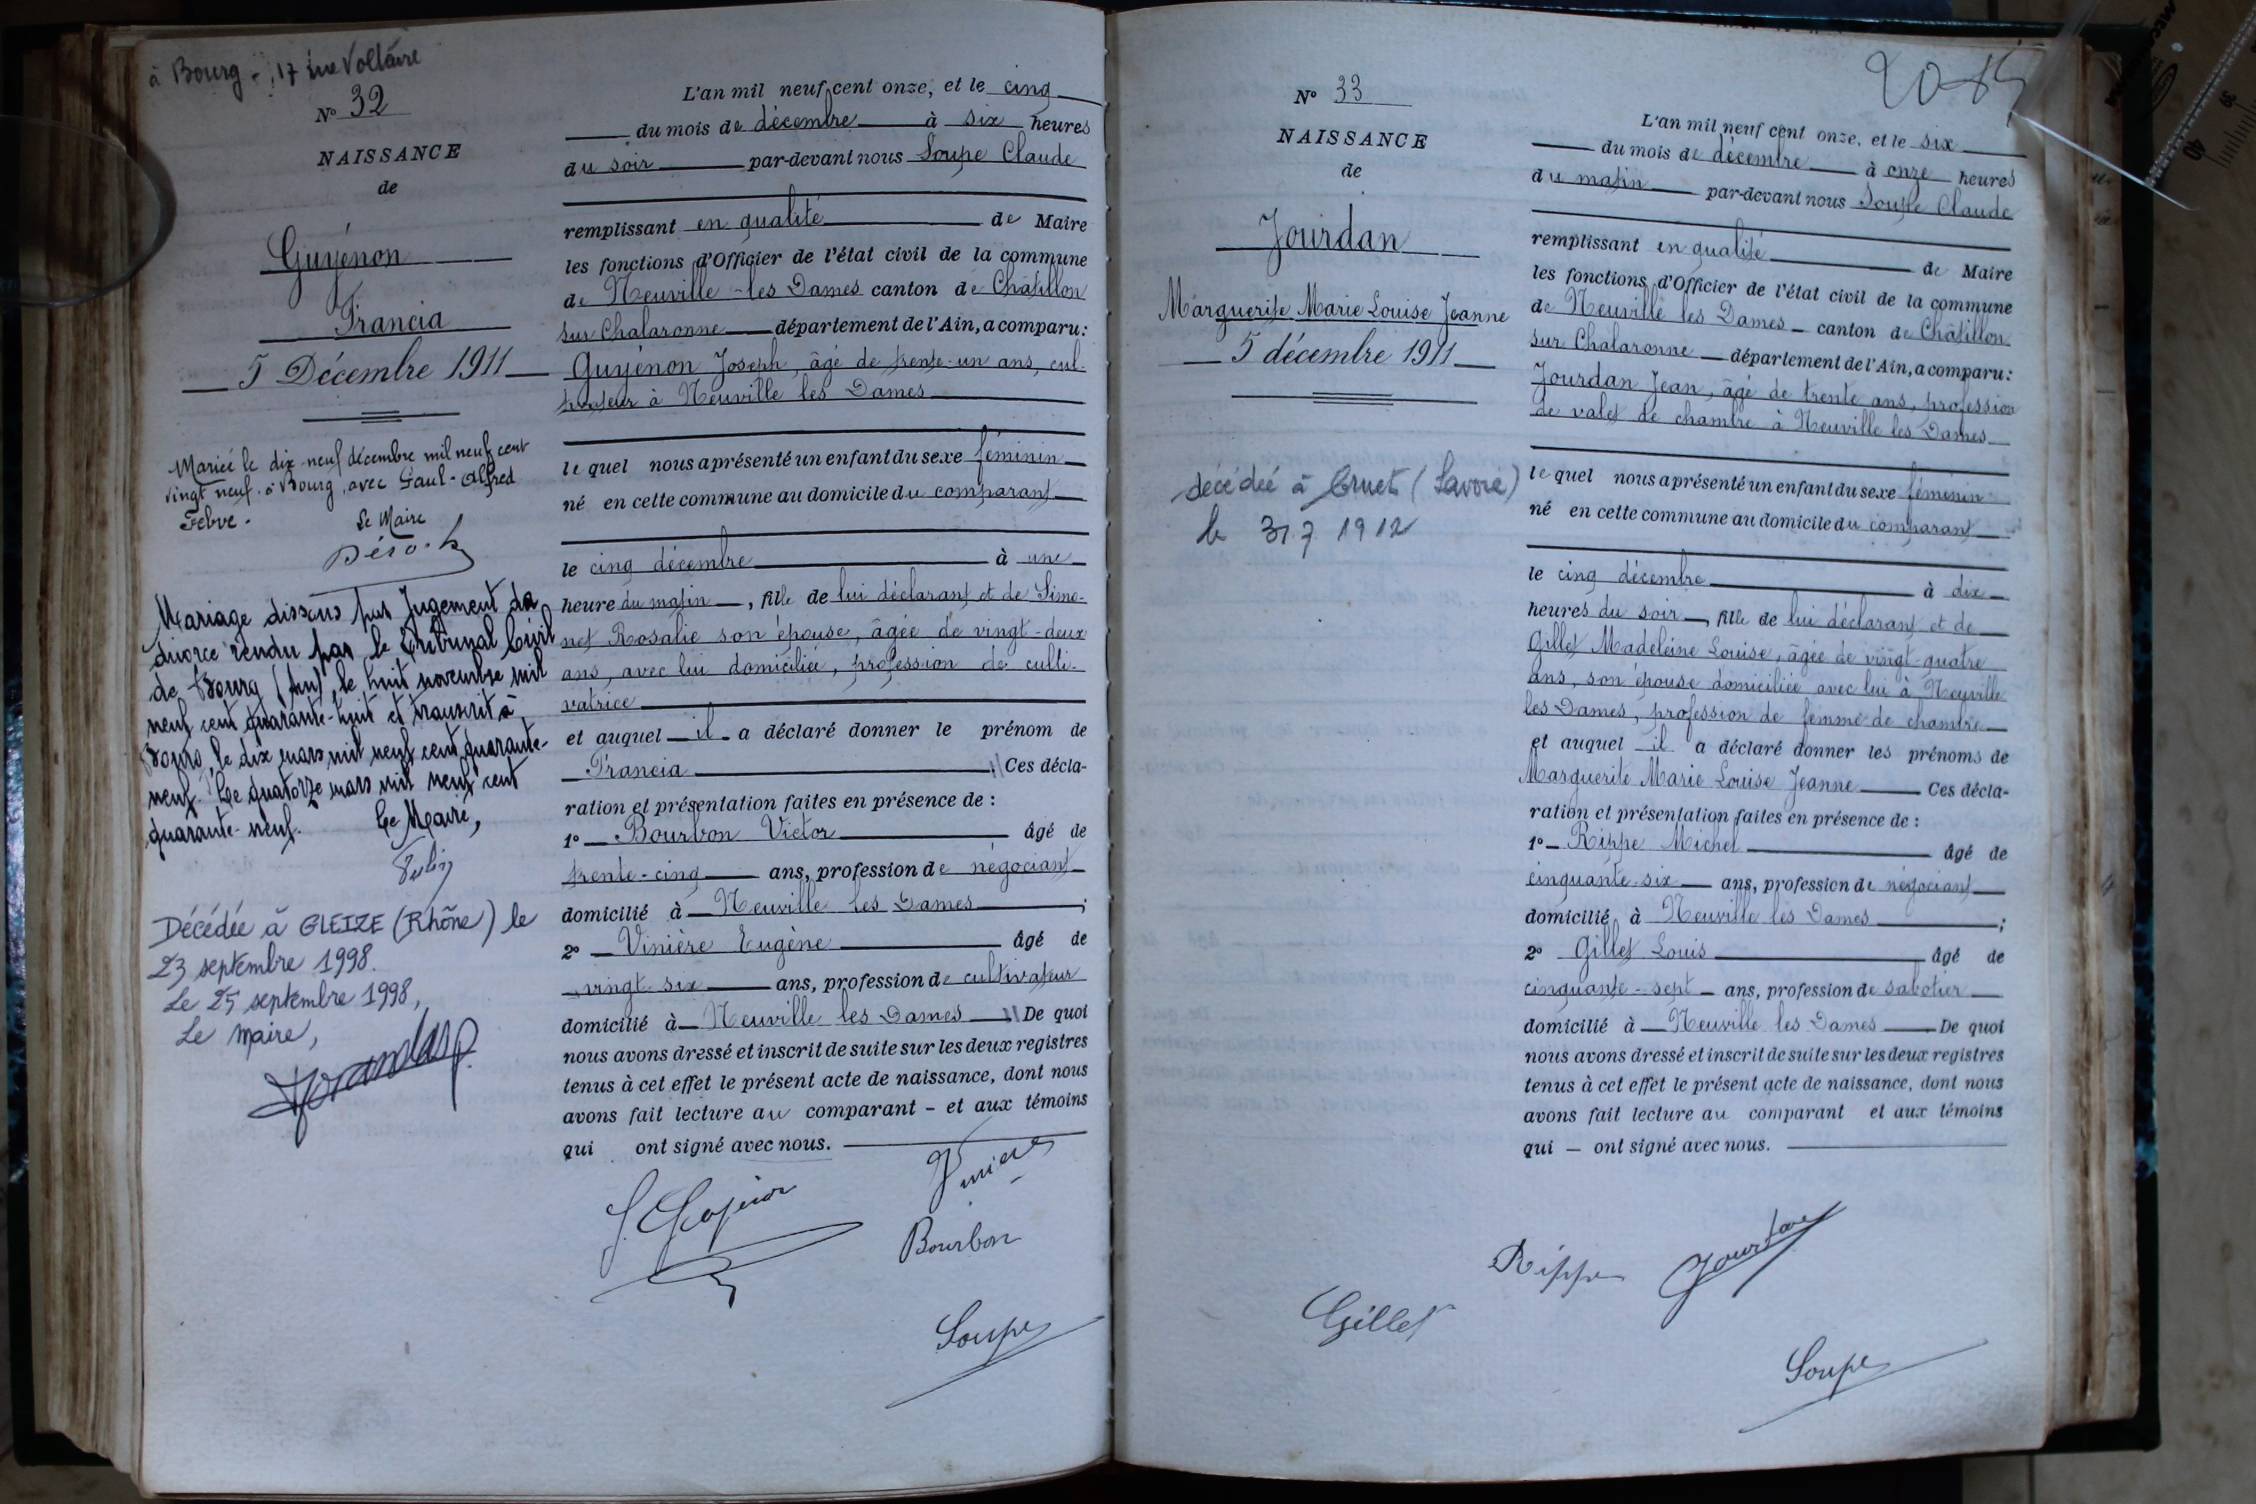 à Bourg - 17 rue Voltaire
N° 32
NAISSANCE
de
Guyénon
Francia
5 Décembre 1911
Mariée le dix neuf décembre mil neuf cent
vingt neuf à Bourg, avec Paul-Alfred
Febve.
Le Maire
Mariage dissous par Jugement de
divorce rendu par le Tribunal Civil
de Bourg (Ain), le huit novembre mil
neuf cent quarante-huit et transcrit à
Bourg, le dix mars mil neuf cent quarante-
neuf. Le quatorze mars mil neuf cent
quarante-neuf. Le Maire,
Décédée à GLEIZE (Rhône) le
23 septembre 1998.
Le 25 septembre 1998,
Le Maire,
L'an mil neuf cent onze, et le cinq
du mois de décembre à six heures
du soir par-devant nous Soupe Claude
remplissant en qualité de Maire
les fonctions d'Officier de l'état civil de la commune
de Neuville-les Dames canton de Châtillon
sur Chalaronne département de l'Ain, a comparu:
Guyénon Joseph, âgé de trente-un ans, cul-
tivateur à Neuville les Dames
le quel nous a présenté un enfant du sexe féminin
né en cette commune au domicile du comparant
le cinq décembre à une
heure du matin, fille de lui déclarant et de Simo-
net Rosalie son épouse, âgée de vingt-deux
ans, avec lui domiciliée, profession de culti-
vatrice
et auquel il a déclaré donner le prénom de
Francia Ces décla-
ration et présentation faites en présence de :
1° Bourbon Victor âgé de
trente-cinq ans, profession de négociant
domicilié à Neuville les Dames ;
2° Vinière Eugène âgé de
vingt-six ans, profession de cultivateur
domicilié à Neuville les Dames De quoi
nous avons dressé et inscrit de suite sur les deux registres
tenus à cet effet le présent acte de naissance, dont nous
avons fait lecture au comparant - et aux témoins
qui ont signé avec nous.
Bourbon
Soupe
20-15
N° 33
NAISSANCE
de
Jourdan
Marguerite Marie Louise Jeanne
5 décembre 1911
décédée à Cruet (Savoie)
le 31 7 1912
L'an mil neuf cent onze, et le six
du mois de décembre à onze heures
du matin par-devant nous Soupe Claude
remplissant en qualité de Maire
les fonctions d'Officier de l'état civil de la commune
de Neuville les Dames - canton de Châtillon
sur Chalaronne département de l'Ain, a comparu:
Jourdan Jean, âgé de trente ans, profession
de valet de chambre à Neuville les Dames
le quel nous a présenté un enfant du sexe féminin
né en cette commune au domicile du comparant
le cinq décembre à dix
heures du soir, fille de lui déclarant et de
Gillet Madeleine Louise, âgée de vingt-quatre
ans, son épouse domiciliée avec lui à Neuville
les Dames, profession de femme de chambre
et auquel il a déclaré donner les prénoms de
Marguerite Marie Louise Jeanne Ces décla-
ration et présentation faites en présence de :
1° Rippe Michel âgé de
cinquante-six ans, profession de négociant
domicilié à Neuville les Dames ;
2° Gillet Louis âgé de
cinquante-sept ans, profession de sabotier
domicilié à Neuville les Dames De quoi
nous avons dressé et inscrit de suite sur les deux registres
tenus à cet effet le présent acte de naissance, dont nous
avons fait lecture au comparant et aux témoins
qui - ont signé avec nous.
Rippe Jourdan
Gillet
Soupe